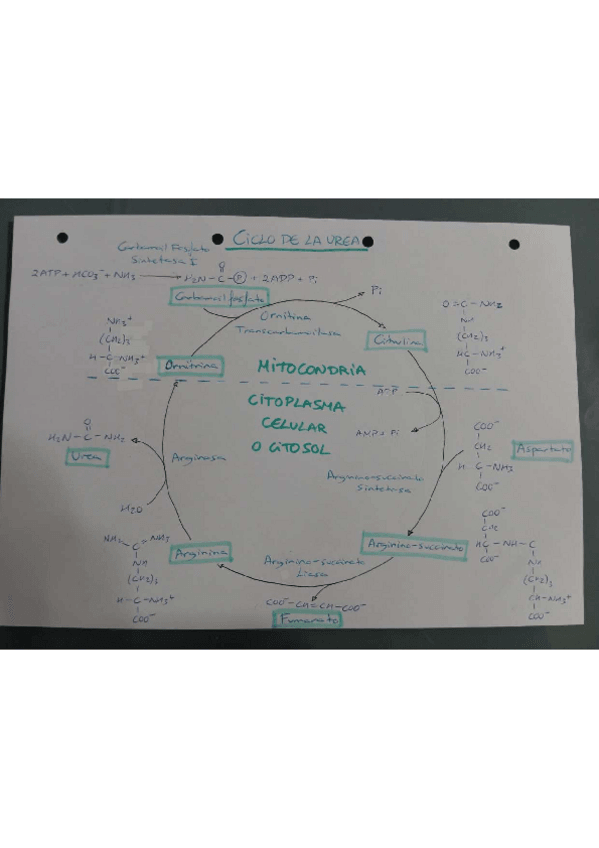 CICLO DE LA UREA
Carbamoil fosfato
Sintetasa I
2ATP + HCO3⁻ + NH3 → H2N - C - P + 2ADP + Pi
O
Carbamoil fosfato
Pi
Ornitina
Transcarbamilasa
Citrulina
O = C - NH2
NH
(CH2)3
HC - NH3⁺
COO⁻
NH3⁺
(CH2)3
H - C - NH3⁺
COO⁻
Ornitrina
MITOCONDRIA
CITOPLASMA
CELULAR
O CITOSOL
ATP
AMP + Pi
COO⁻
CH2
H C - NH3
COO⁻
Aspartato
Arginino-succinato
Sintetasa
O
H2N - C - NH2
Urea
Arginasa
H2O
NH2 C NH2
NH
(CH2)3
H - C - NH3⁺
COO⁻
Arginina
Arginino-succinato
Liasa
Arginino-succinato
COO⁻
CH2
HC - NH - C
COO⁻
NH
(CH2)3
CH-NH3⁺
COO⁻
COO⁻-CH=CH-COO⁻
Fumarato